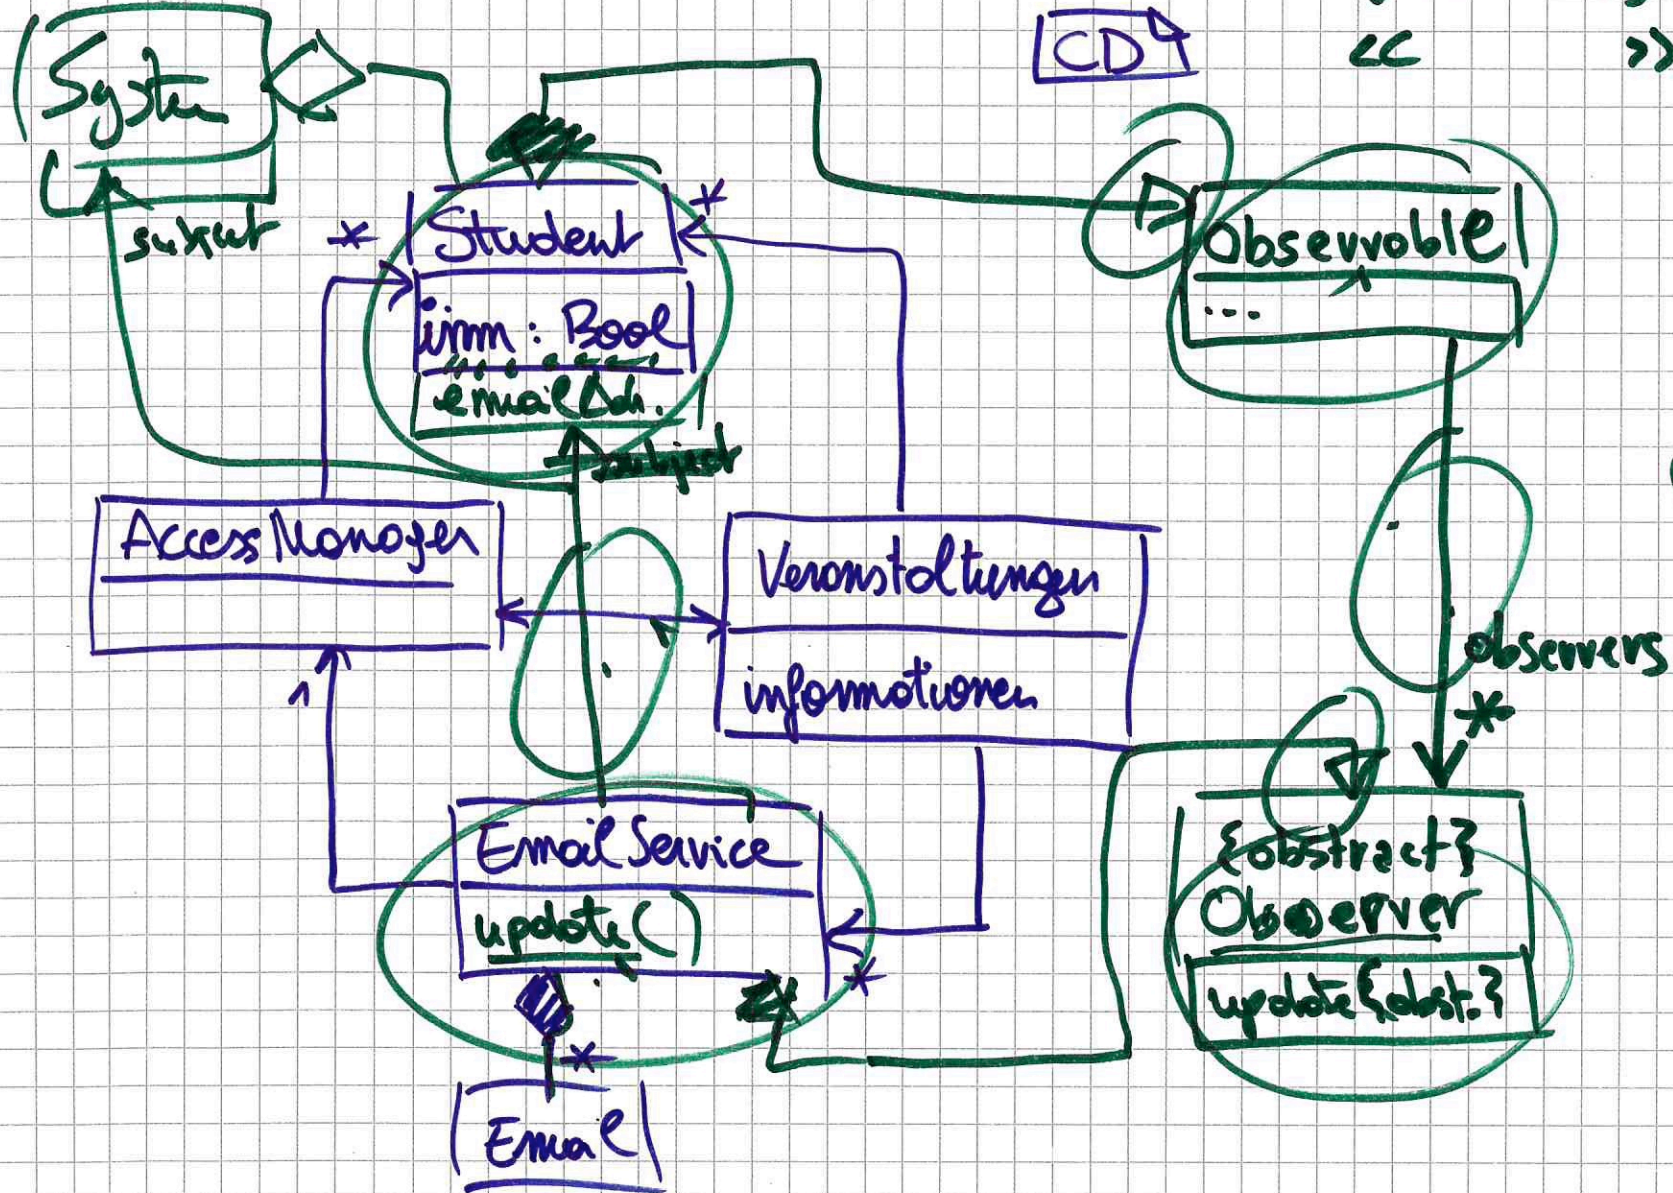 CD
<< >>
System
subject
*
Student
*
imm : Bool
emailAdr.
subject
Observable
...
AccessManager
Veranstaltungen
informationen
1
observers
*
EmailService
update()
*
*
Email
{abstract}
Observer
update{abst.}